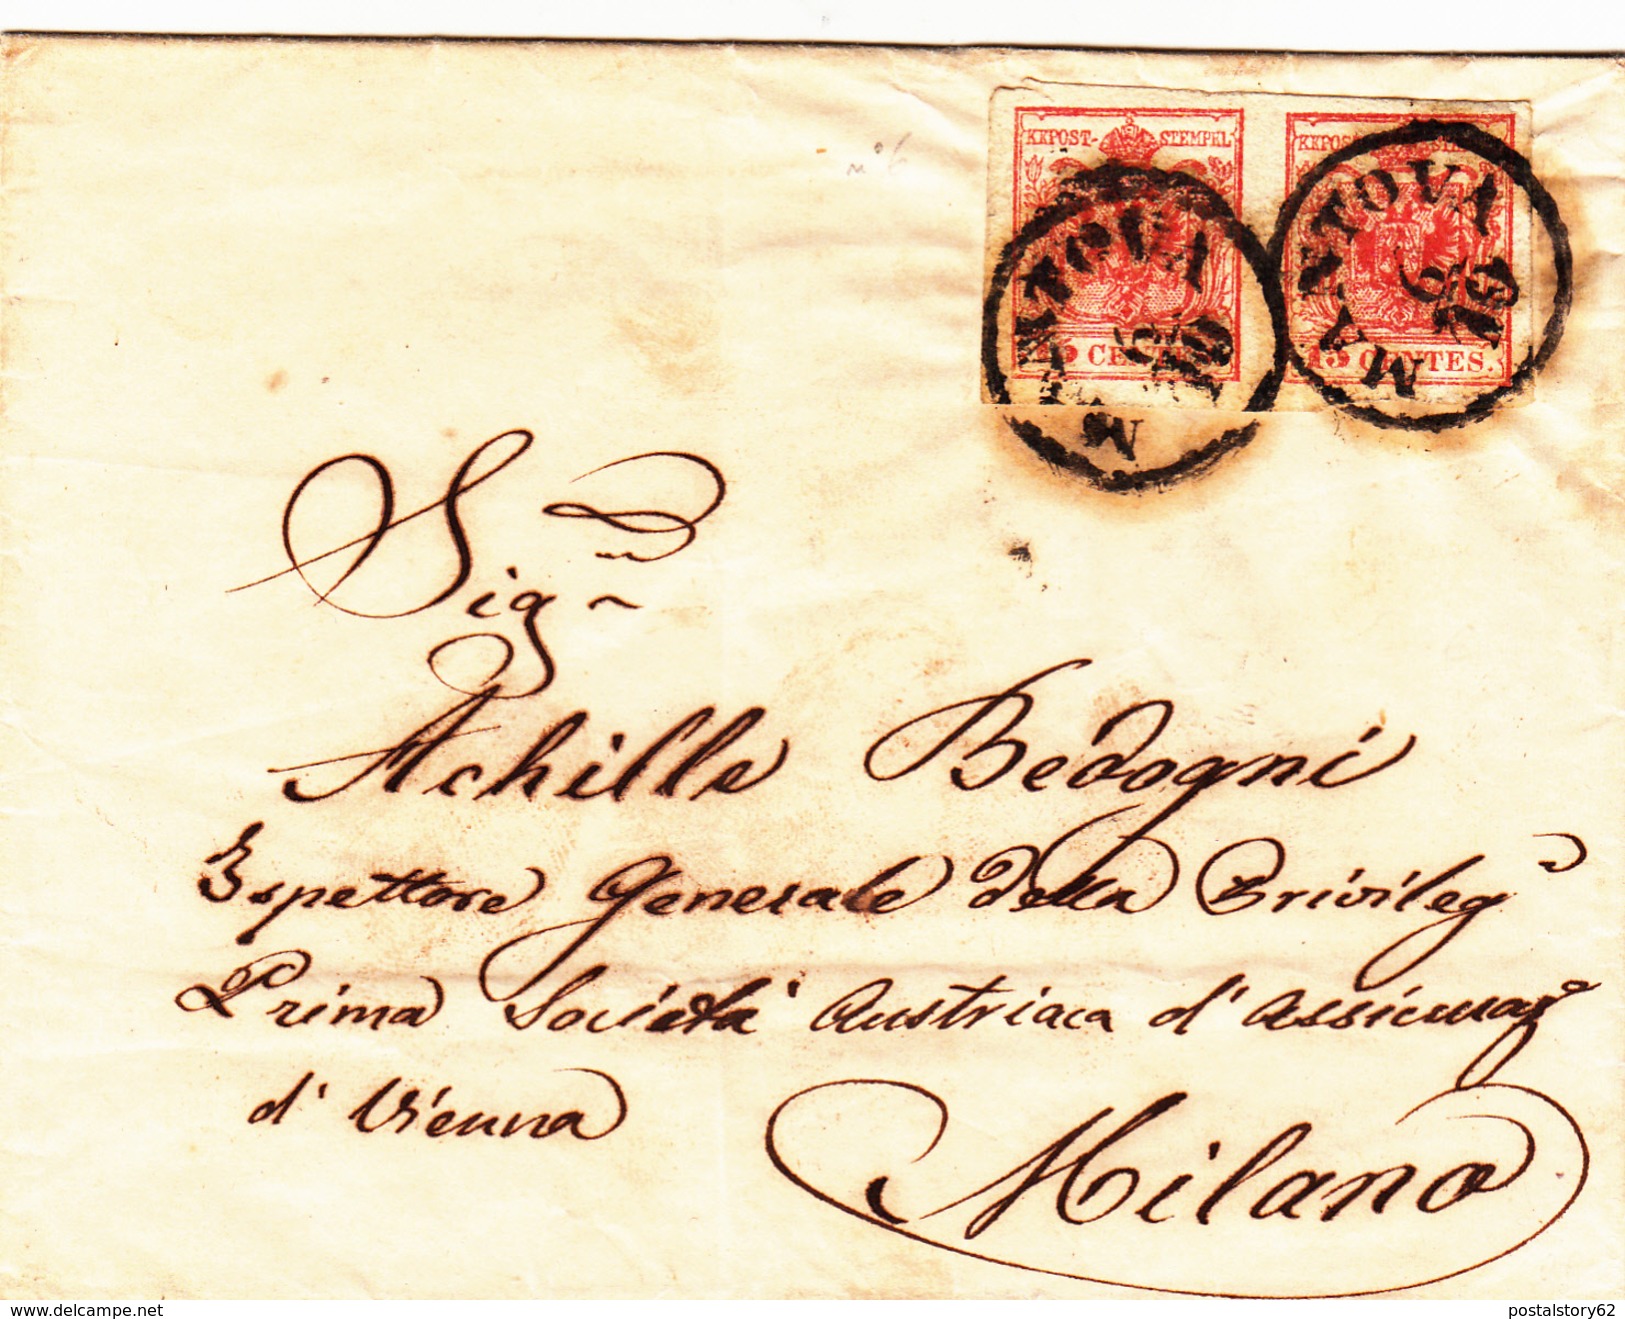 KKPOST- STEMPEL
15 CENTES.
MANTOVA
MANTOVA
Sigr
Achille Bedogni
Ispettore Generale della Privilega
Prima Società Austriaca d'Assicuraze
di Vienna
Milano
www.delcampe.net
postalstory62